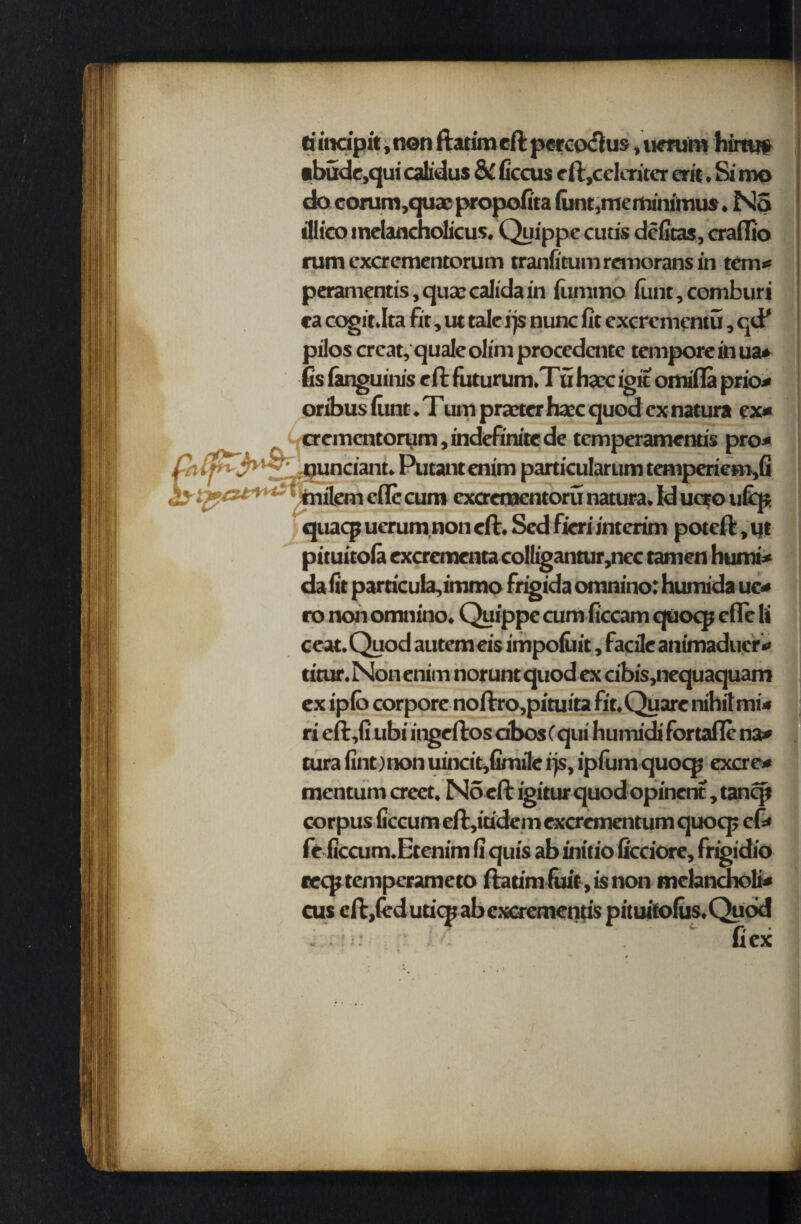 ti incipit, non ſtatim eſt percoctus, uerum hirtus
abūde, qui calidus & ſiccus eſt, celeriter erit. Si mo
do eorum, quæ propoſita ſunt, meminimus. Nō
illico melancholicus. Quippe cutis dēſitas, craſſio
rum excrementorum tranſitum remorans in tem⸗
peramentis, quæ calida in ſummo ſunt, comburi
ea cogit. Ita fit, ut tale ijs nunc ſit excrementū, qđ
pilos creat, quale olim procedente tempore in ua⸗
ſis ſanguinis eſt futurum. Tū hæc igiť omiſſa prio⸗
oribus ſunt. Tum præter hæc quod ex natura ex⸗
crementorum, indefinite de temperamentis pro⸗
nunciant. Putant enim particularum temperiem, ſi
milem eſſe cum excrementorū natura. Id uero uſq;
quaq; uerum non eſt. Sed fieri interim poteſt, ut
pituitoſa excrementa colligantur, nec tamen humi⸗
da ſit particula, immo frigida omnino: humida ue⸗
ro non omnino. Quippe cum ſiccam quoq; eſſe li
ceat. Quod autem eis impoſuit, facile animaduer⸗
titur. Non enim norunt quod ex cibis, nequaquam
ex ipſo corpore noſtro, pituita fit. Quare nihil mi⸗
ri eſt, ſi ubi ingeſtos cibos (qui humidi fortaſſe na⸗
tura ſint) non uincit, ſimile ijs, ipſum quoq; excre⸗
mentum creet. Nō eſt igitur quod opinent̃, tanq̃
corpus ſiccum eſt, itidem excrementum quoq; eſ⸗
ſe ſiccum. Etenim ſi quis ab initio ſicciore, frigidio
req; temperameto ſtatim fuit, is non melancholi⸗
cus eſt, ſed utiq; ab excrementis pituitoſus. Quod
ſi ex